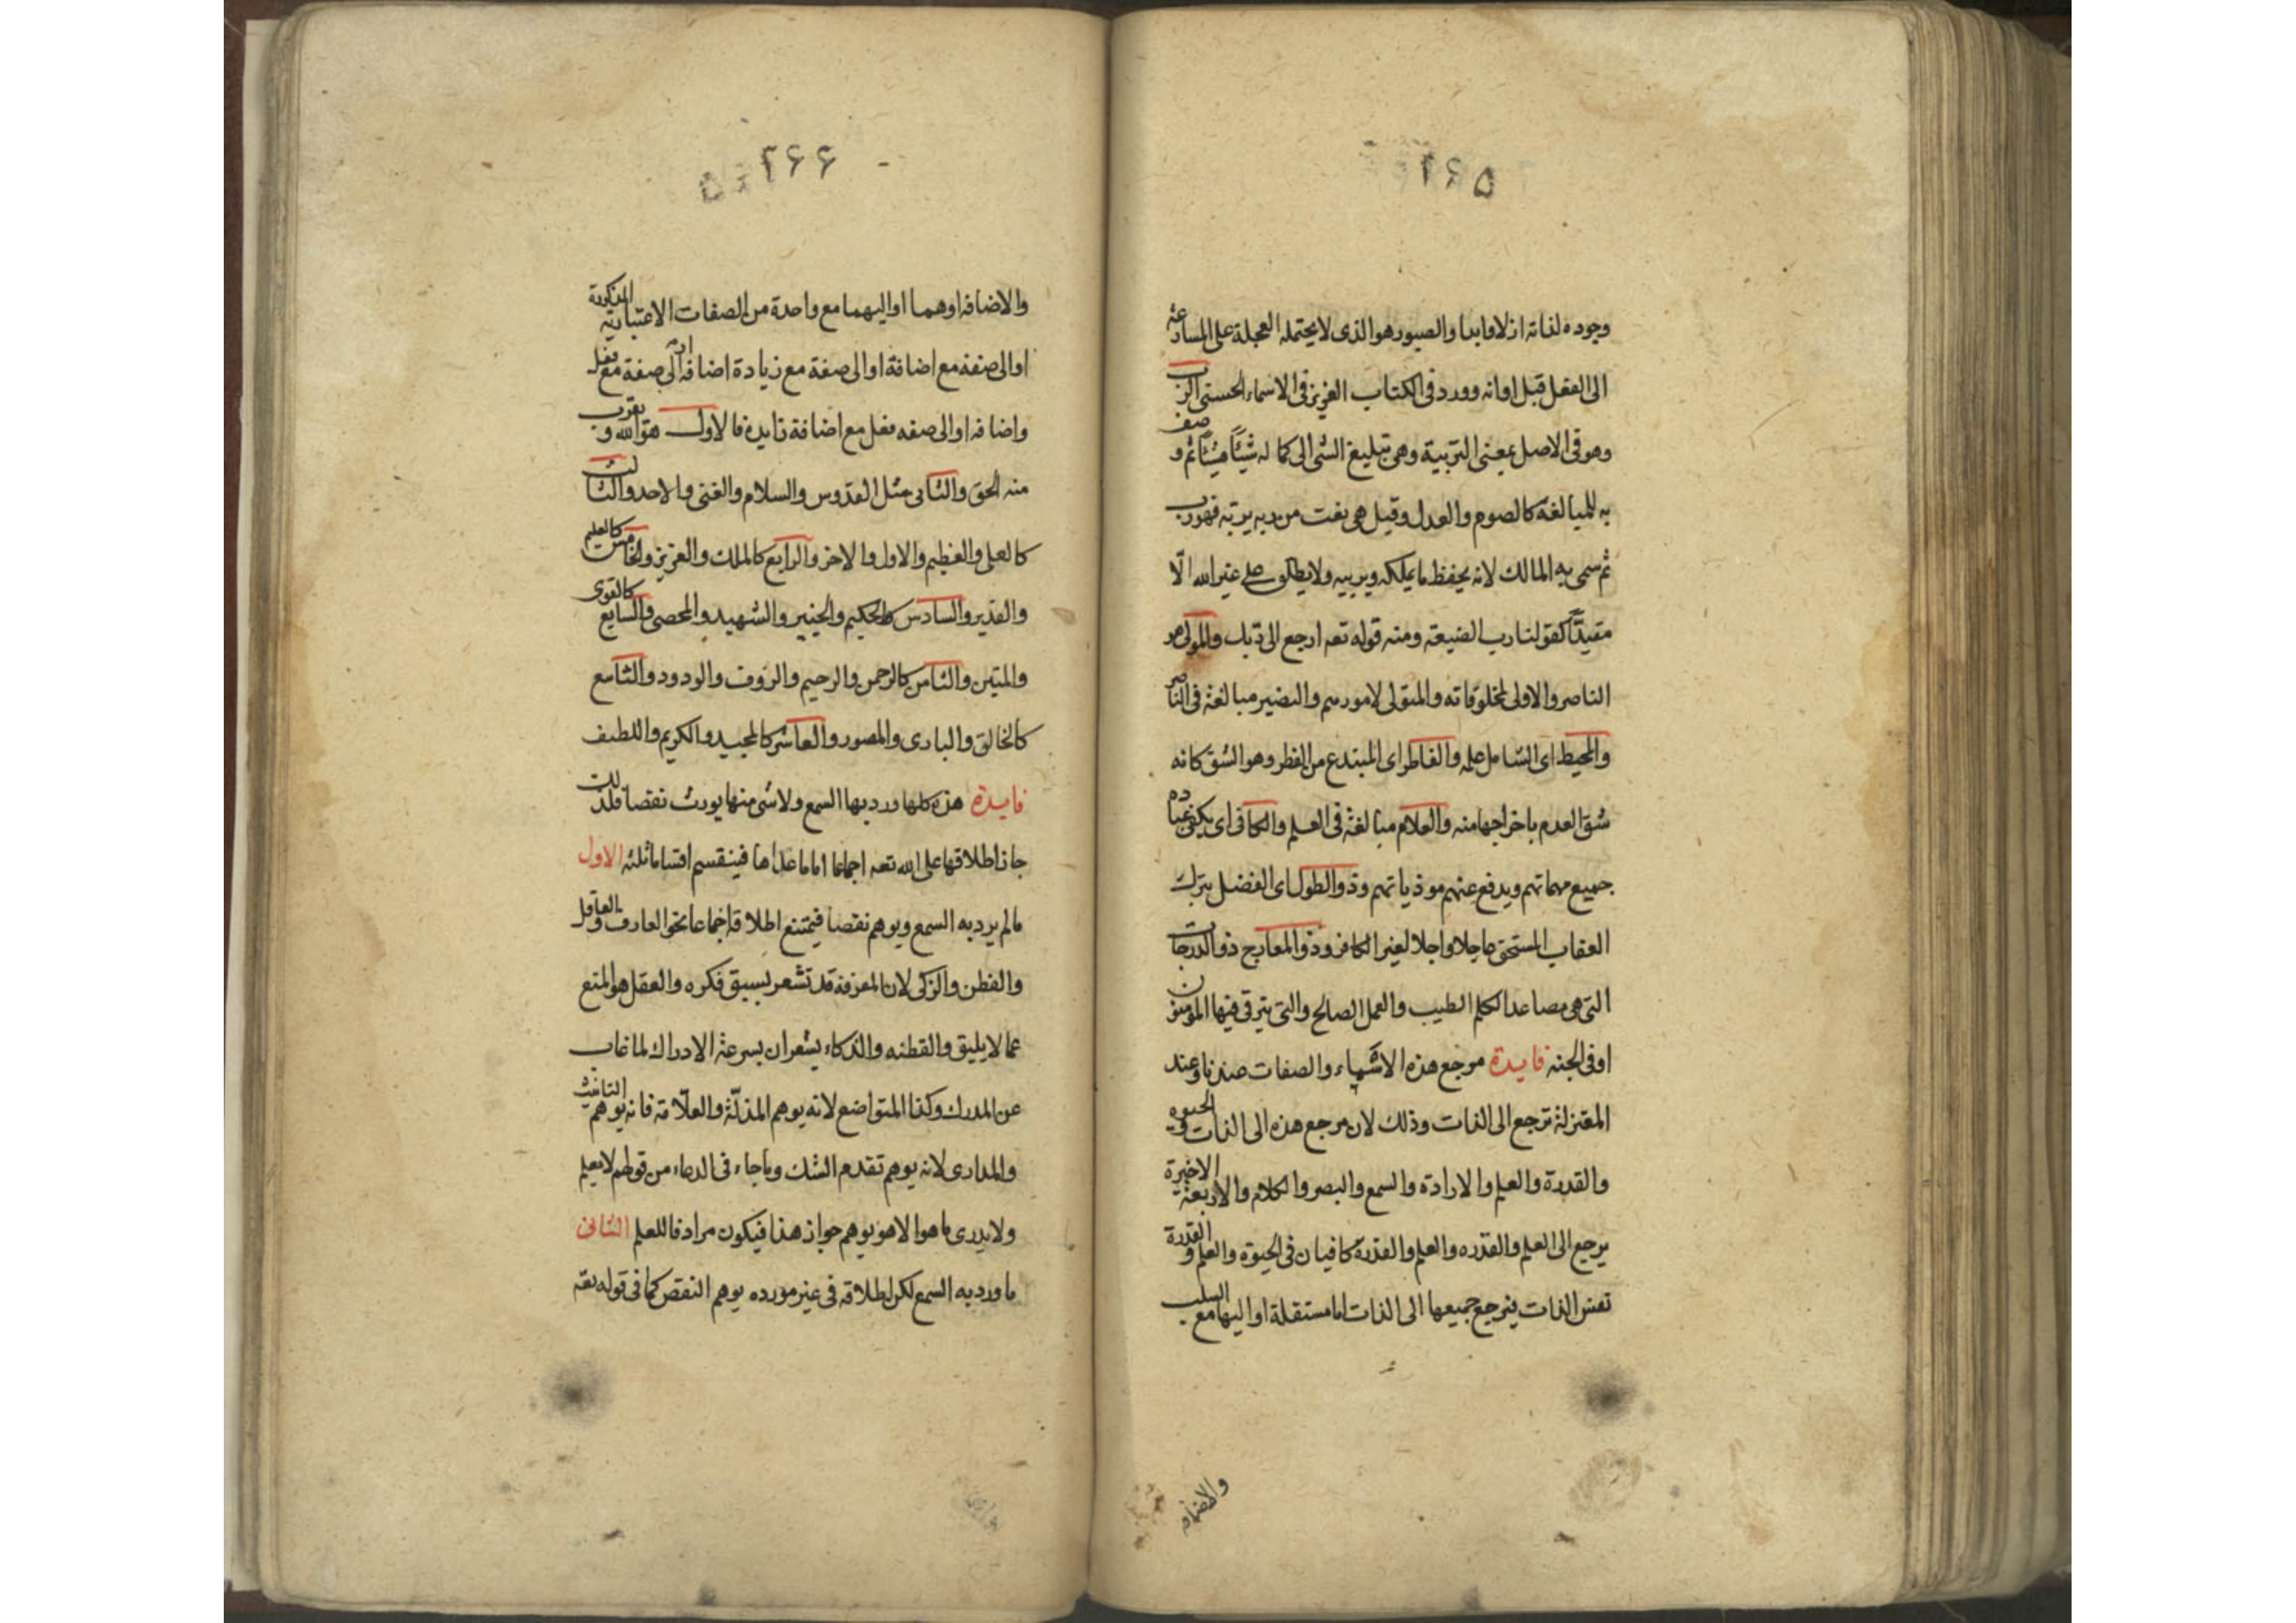 ۲۶۵
وجوده لذاته ازلا وابدا والصبور هو الذى لا يحتمله العجلة على المسارعة
الى الفعل قبل اوانه وورد فى الكتاب العزيز فى الاسماء الحسنى الرب
وهو فى الاصل بمعنى التربية وهى تبليغ الشى الى كماله شيئا فشيئا ثم وصف
به للمبالغة كالصوم والعدل وقيل هى نعت من ربه يربه فهو رب
ثم سمى به المالك لانه يحفظ ما يملكه ويربيه ولا يطلق على غير الله الّا
مقيدًا كقولنا رب الضيعة ومنه قوله تعه ارجع الى ربك والمولى هو
الناصر والاولى بمخلوقاته والمتولى لامورهم والنصير مبالغة فى الناصر
والمحيط اى الشامل علمه والفاطر اى المبتدع من الفطر وهو الشق كانه
شق العدم باخراجها منه والعلام مبالغة فى العلم والكافى اى يكفى عباده
جميع مهماتهم ويدفع عنهم موذياتهم وذو الطول اى الفضل بترك
العقاب المستحق عاجلا واجلا لغير الكافر وذو المعارج ذو الدرجات
التى هى مصاعد الكلم الطيب والعمل الصالح والتى يترقى فيها المؤمنون
او فى الجنه فايدة مرجع هذه الاشياء والصفات عندنا وعند
المعتزلة ترجع الى الذات وذلك لان مرجع هذه الى الذات والحيوه
والقدرة والعلم والارادة والسمع والبصر والكلام والاربعة الاخيرة
يرجع الى العلم والقدره والعلم والقدرة كافيان فى الحيوه والعلم والقدرة
نفس الذات فيرجع جميعها الى الذات اما مستقلة او اليها مع السلب
والاضافه
۲۶۶
والاضافه او هما او اليهما مع واحدة من الصفات الاعتبارية المذكورة
او الى صفه مع اضافة او الى صفة مع زيادة اضافه او الى صفة مع فعل
واضافه او الى صفه فعل مع اضافة زايدة فالاول هو الله ويقرب
منه الحق والثانى مثل القدوس والسلام والغنى والاحد والثالث
كالعلى والعظيم والاول والاخر والرابع كالملك والعزيز والخامس كالعليم
والقدير والسادس كالحكيم والخبير والشهيد والمحصى والسابع كالقوى
والمتين والثامن كالرحمن والرحيم والروف والودود والتاسع
كالخالق والبارى والمصور والعاشر كالمجيد والكريم واللطيف
فايدة هذه كلها ورد بها السمع ولا شى منها يورث نقصا فلذلك
جاز اطلاقها على الله تعه اجماعا اما ما عداها فينقسم اقساما ثلثه الاول
ما لم يرد به السمع ويوهم نقصا فيمتنع اطلاقه اجماعا نحو العارف والعاقل
والفطن والزكى لان المعرفة قد تشعر بسبق فكره والعقل هو المنع
عما لا يليق والفطنه والذكاء يشعران بسرعة الادراك لما غاب
عن المدرك وكذا المتواضع لانه يوهم المذلّة والعلّامة فانه يوهم التانيث
والدارى لانه يوهم تقدم الشك وما جاء فى الدعاء من قولهم لا يعلم
ولا يدرى ما هو الا هو يوهم جواز هذا فيكون مرادفا للعلم الثانى
ما ورد به السمع لكن اطلاقه فى غير مورده يوهم النقص كما فى قوله تعه